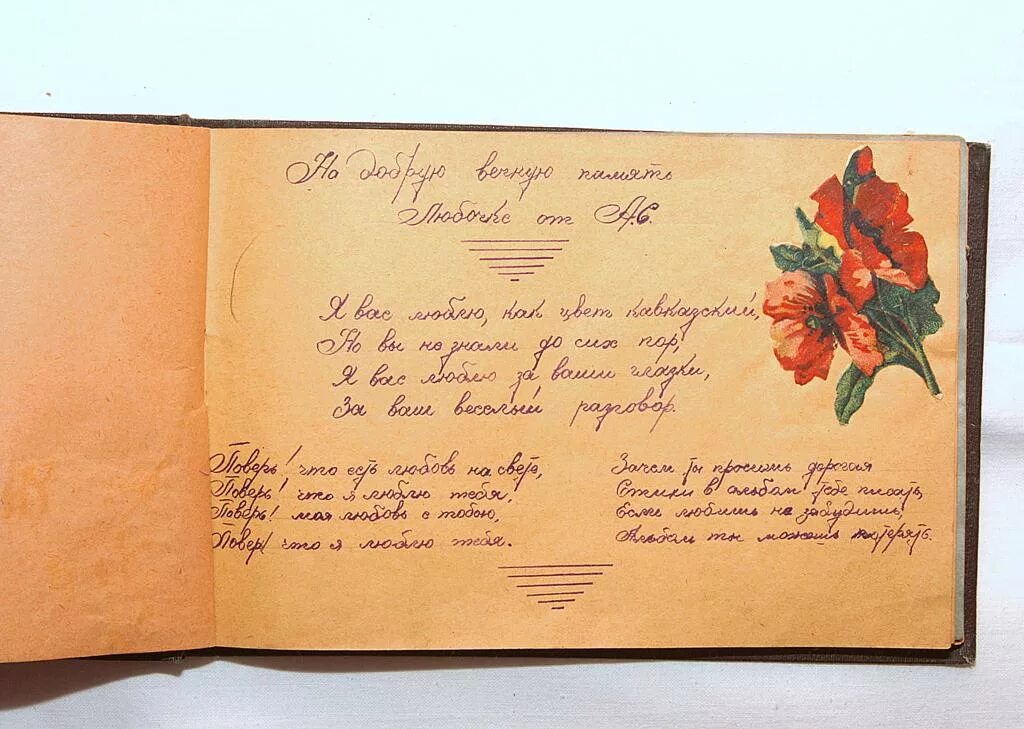 На добрую вечную память
Любочке от А.С.
Я вас люблю, как цвет кавказский,
Но вы не знали до сих пор,
Я вас люблю за ваши глазки,
За ваш веселый разговор.
Поверь! что есть любовь на свете,
Поверь! что я люблю тебя,
Поверь! моя любовь с тобою,
Поверь! что я люблю тебя.
Зачем ты просишь дорогая
Стишки в альбом тебе писать,
Если любишь не забудишь,
Альбом ты можешь потерять.